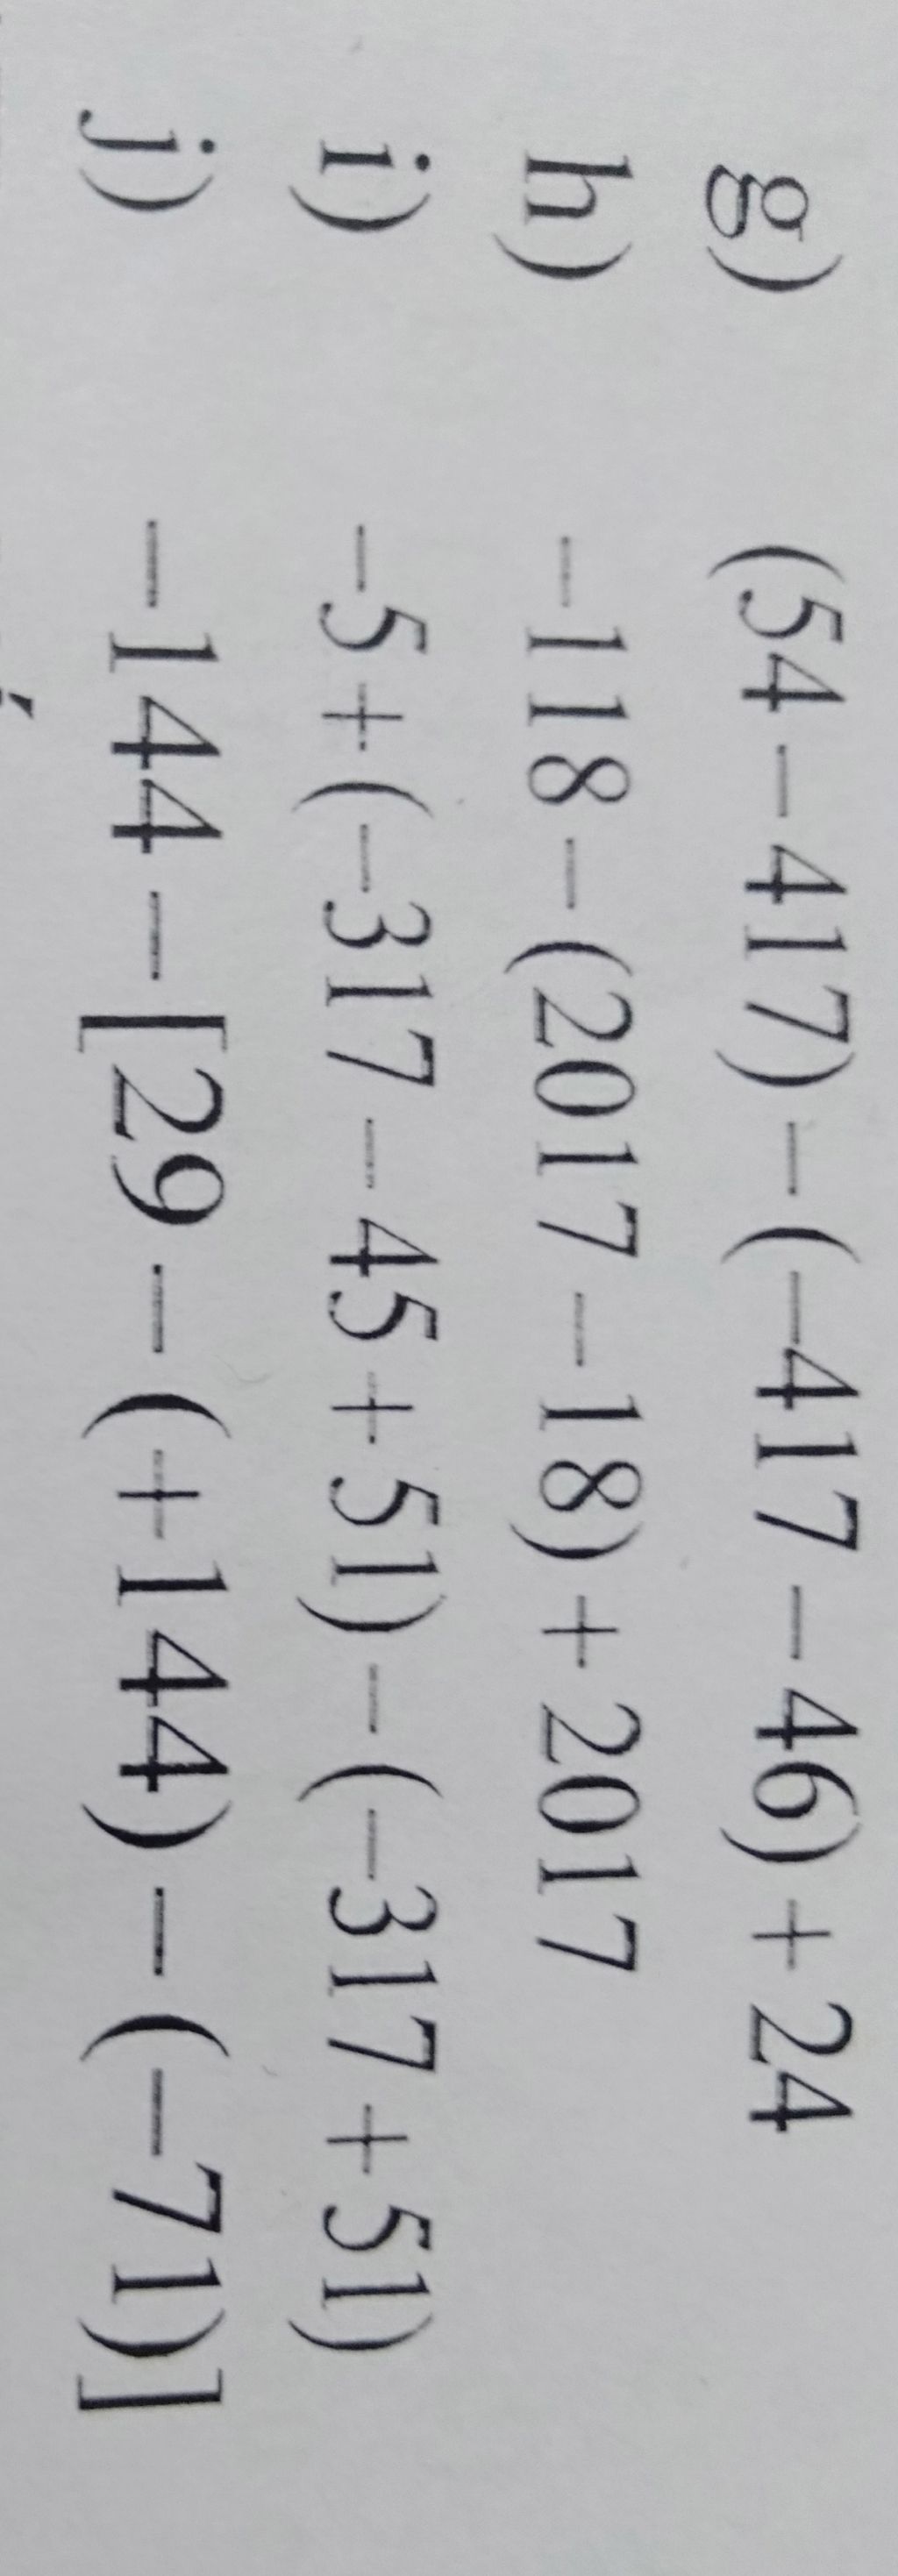 g) (54 – 417) – (–417 – 46) + 24
h) –118 – (2017 – 18) + 2017
i) –5 + (–317 – 45 + 51) – (–317 + 51)
j) –144 – [29 – (+144) – (–71)]